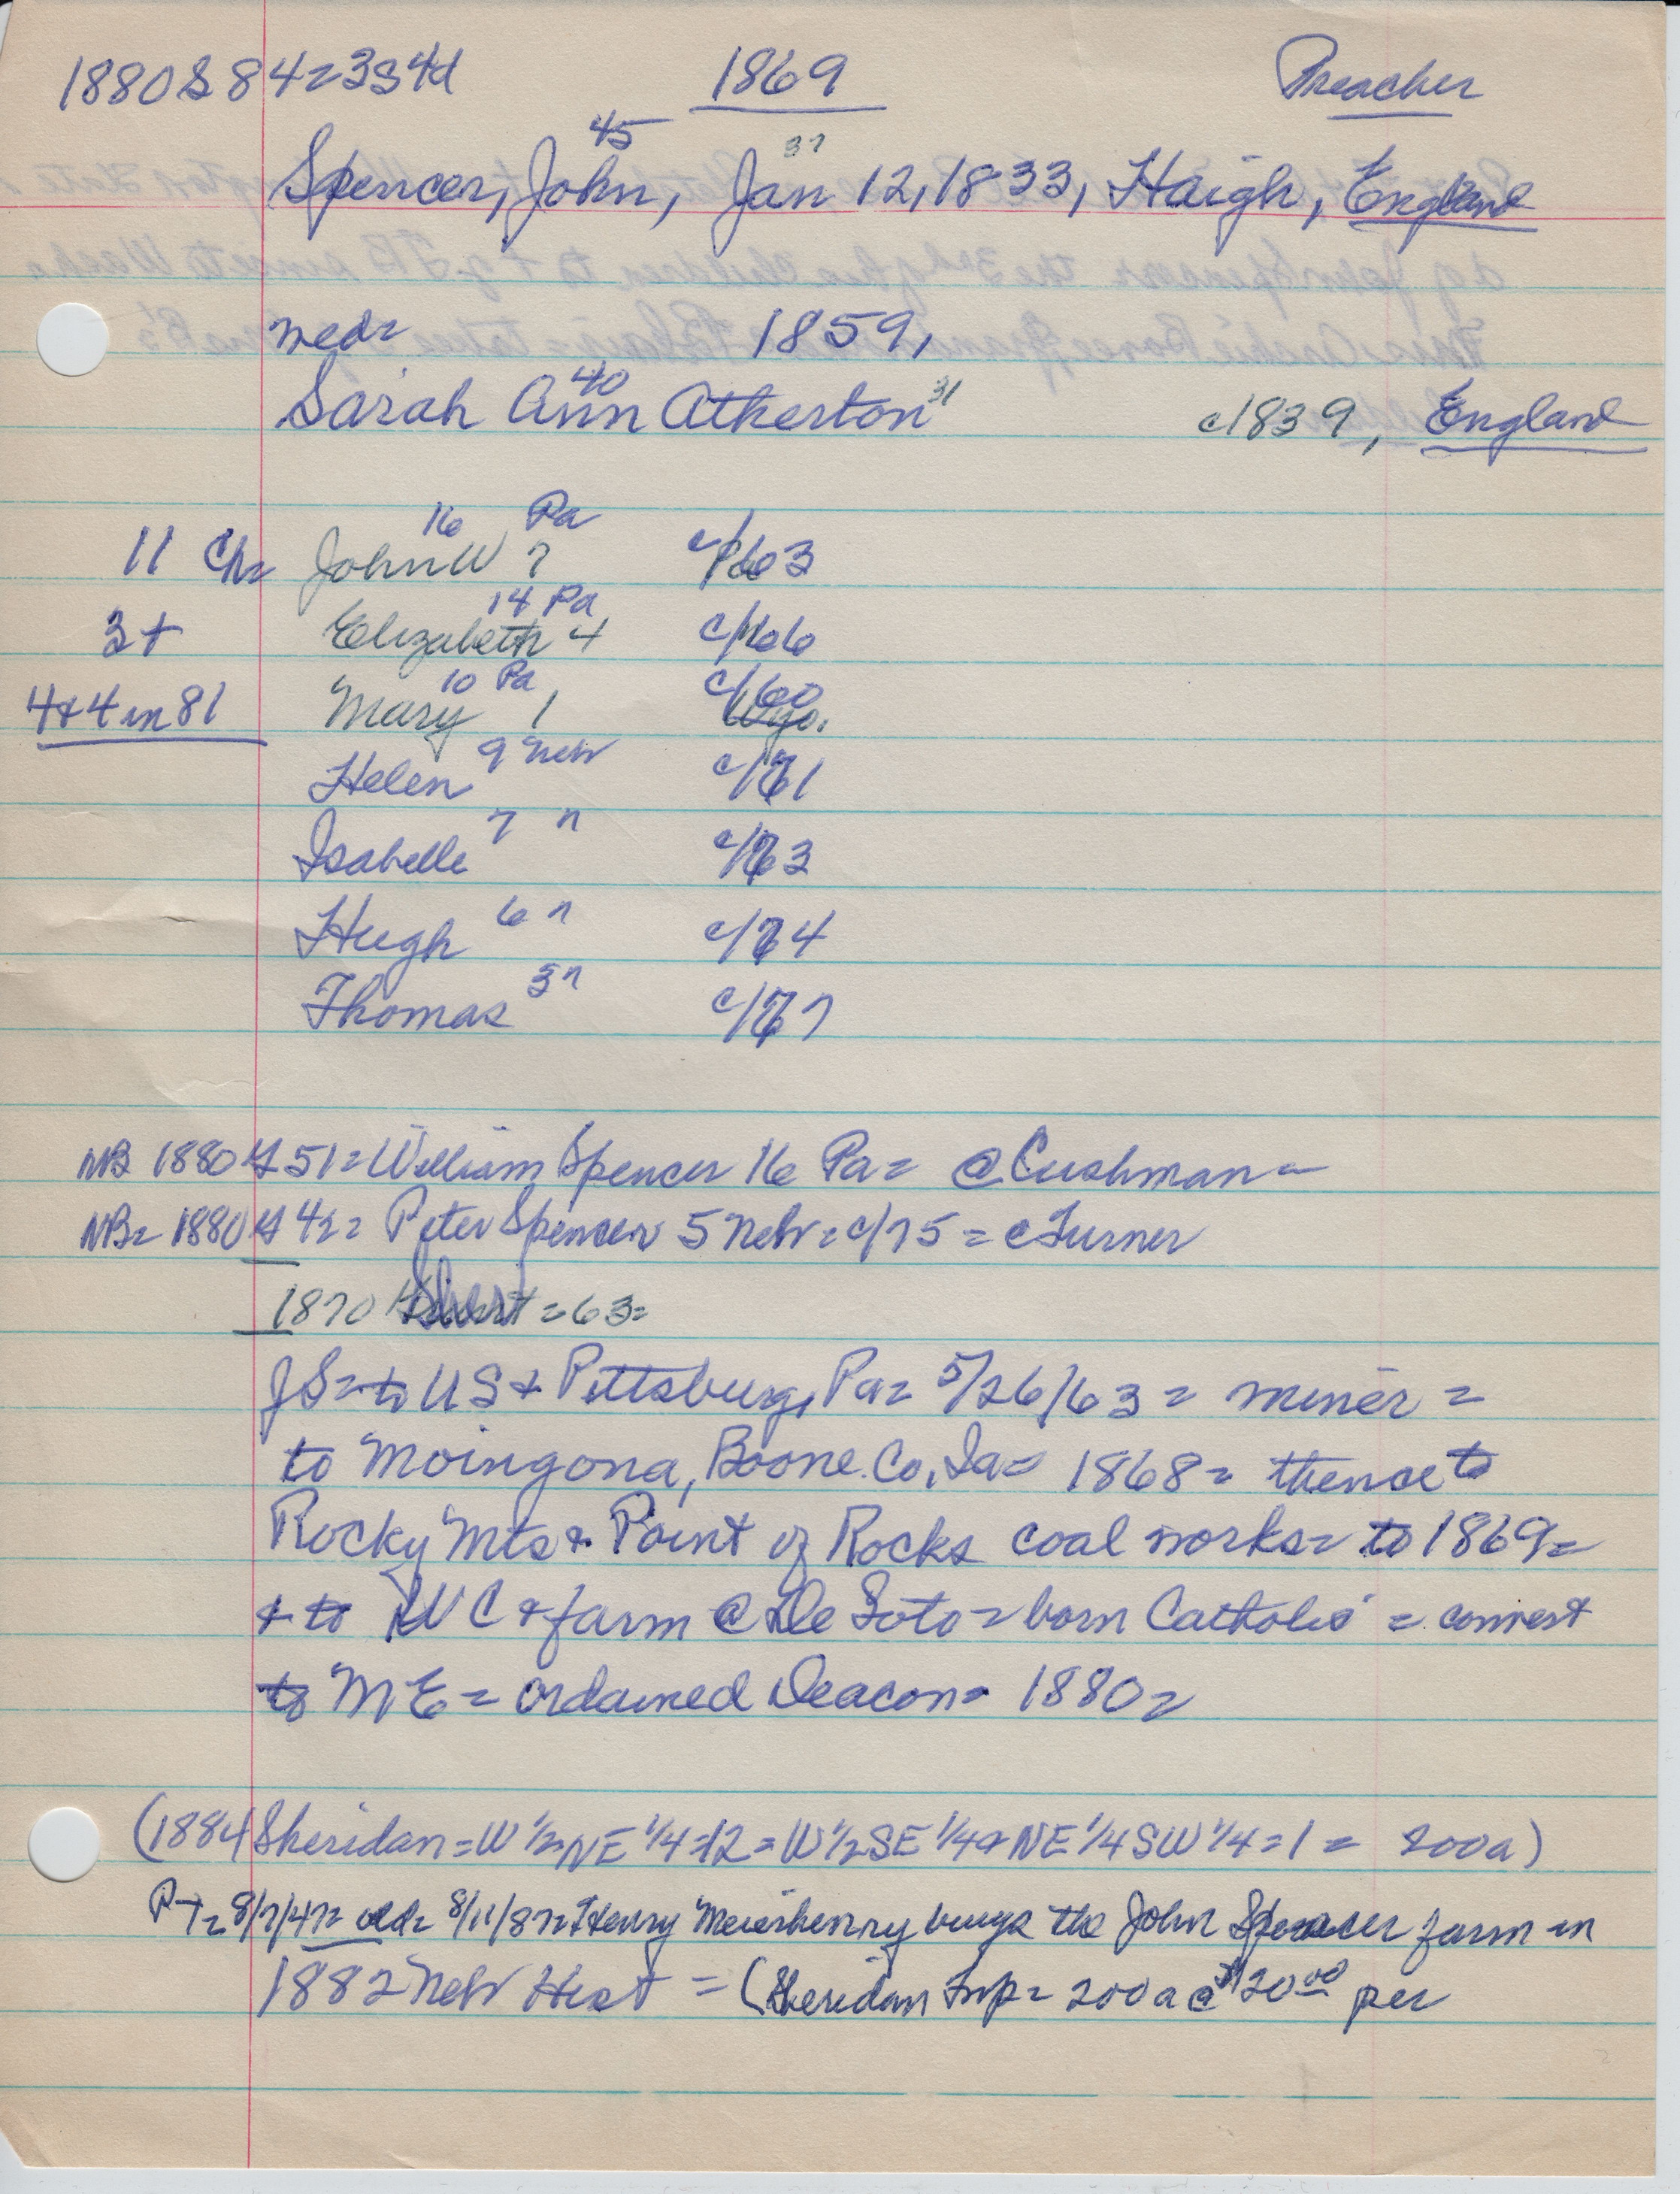 1880 S 84= 3s4d 1869 Preacher
45 37
Spencer, John, Jan 12, 1833, Haigh, England
med= 1859,
40 31
Sarah Ann Atherton c1839, England
16 Pa
11 Ch= John W 7 c/63
14 Pa
3+ Elizabeth 4 c/66
10 Pa
4&4 in 81 Mary 1 Wyo.
9 Neb
Helen c/71
7 n
Isabelle c/73
6 n
Hugh c/74
3 n
Thomas c/77
NB 1880 51= William Spencer 16 Pa= @ Cushman=
NB= 1880 42= Peter Spencer 5 Neb= c/75 = @ Turner
1870 = 63=
JS= to US & Pittsburg, Pa= 5/26/63 = miner =
to Moingona, Boone Co, Ia= 1868= thence to
Rocky Mts & Point of Rocks coal works= to 1869=
& to WC & farm @ De Soto= born Catholic = convert
to ME = ordained Deacon= 1880=
(1884 Sheridan= W 1/2 NE 1/4 =12 = W 1/2 SE 1/4 & NE 1/4 SW 1/4 = 1 = 200a)
PT= 8/7/47= 8/11/87= Henry Meierhenry buys the John Spencer farm in
1882 Neb Hist = (Sheridan Twp= 200a @ $20.00 per